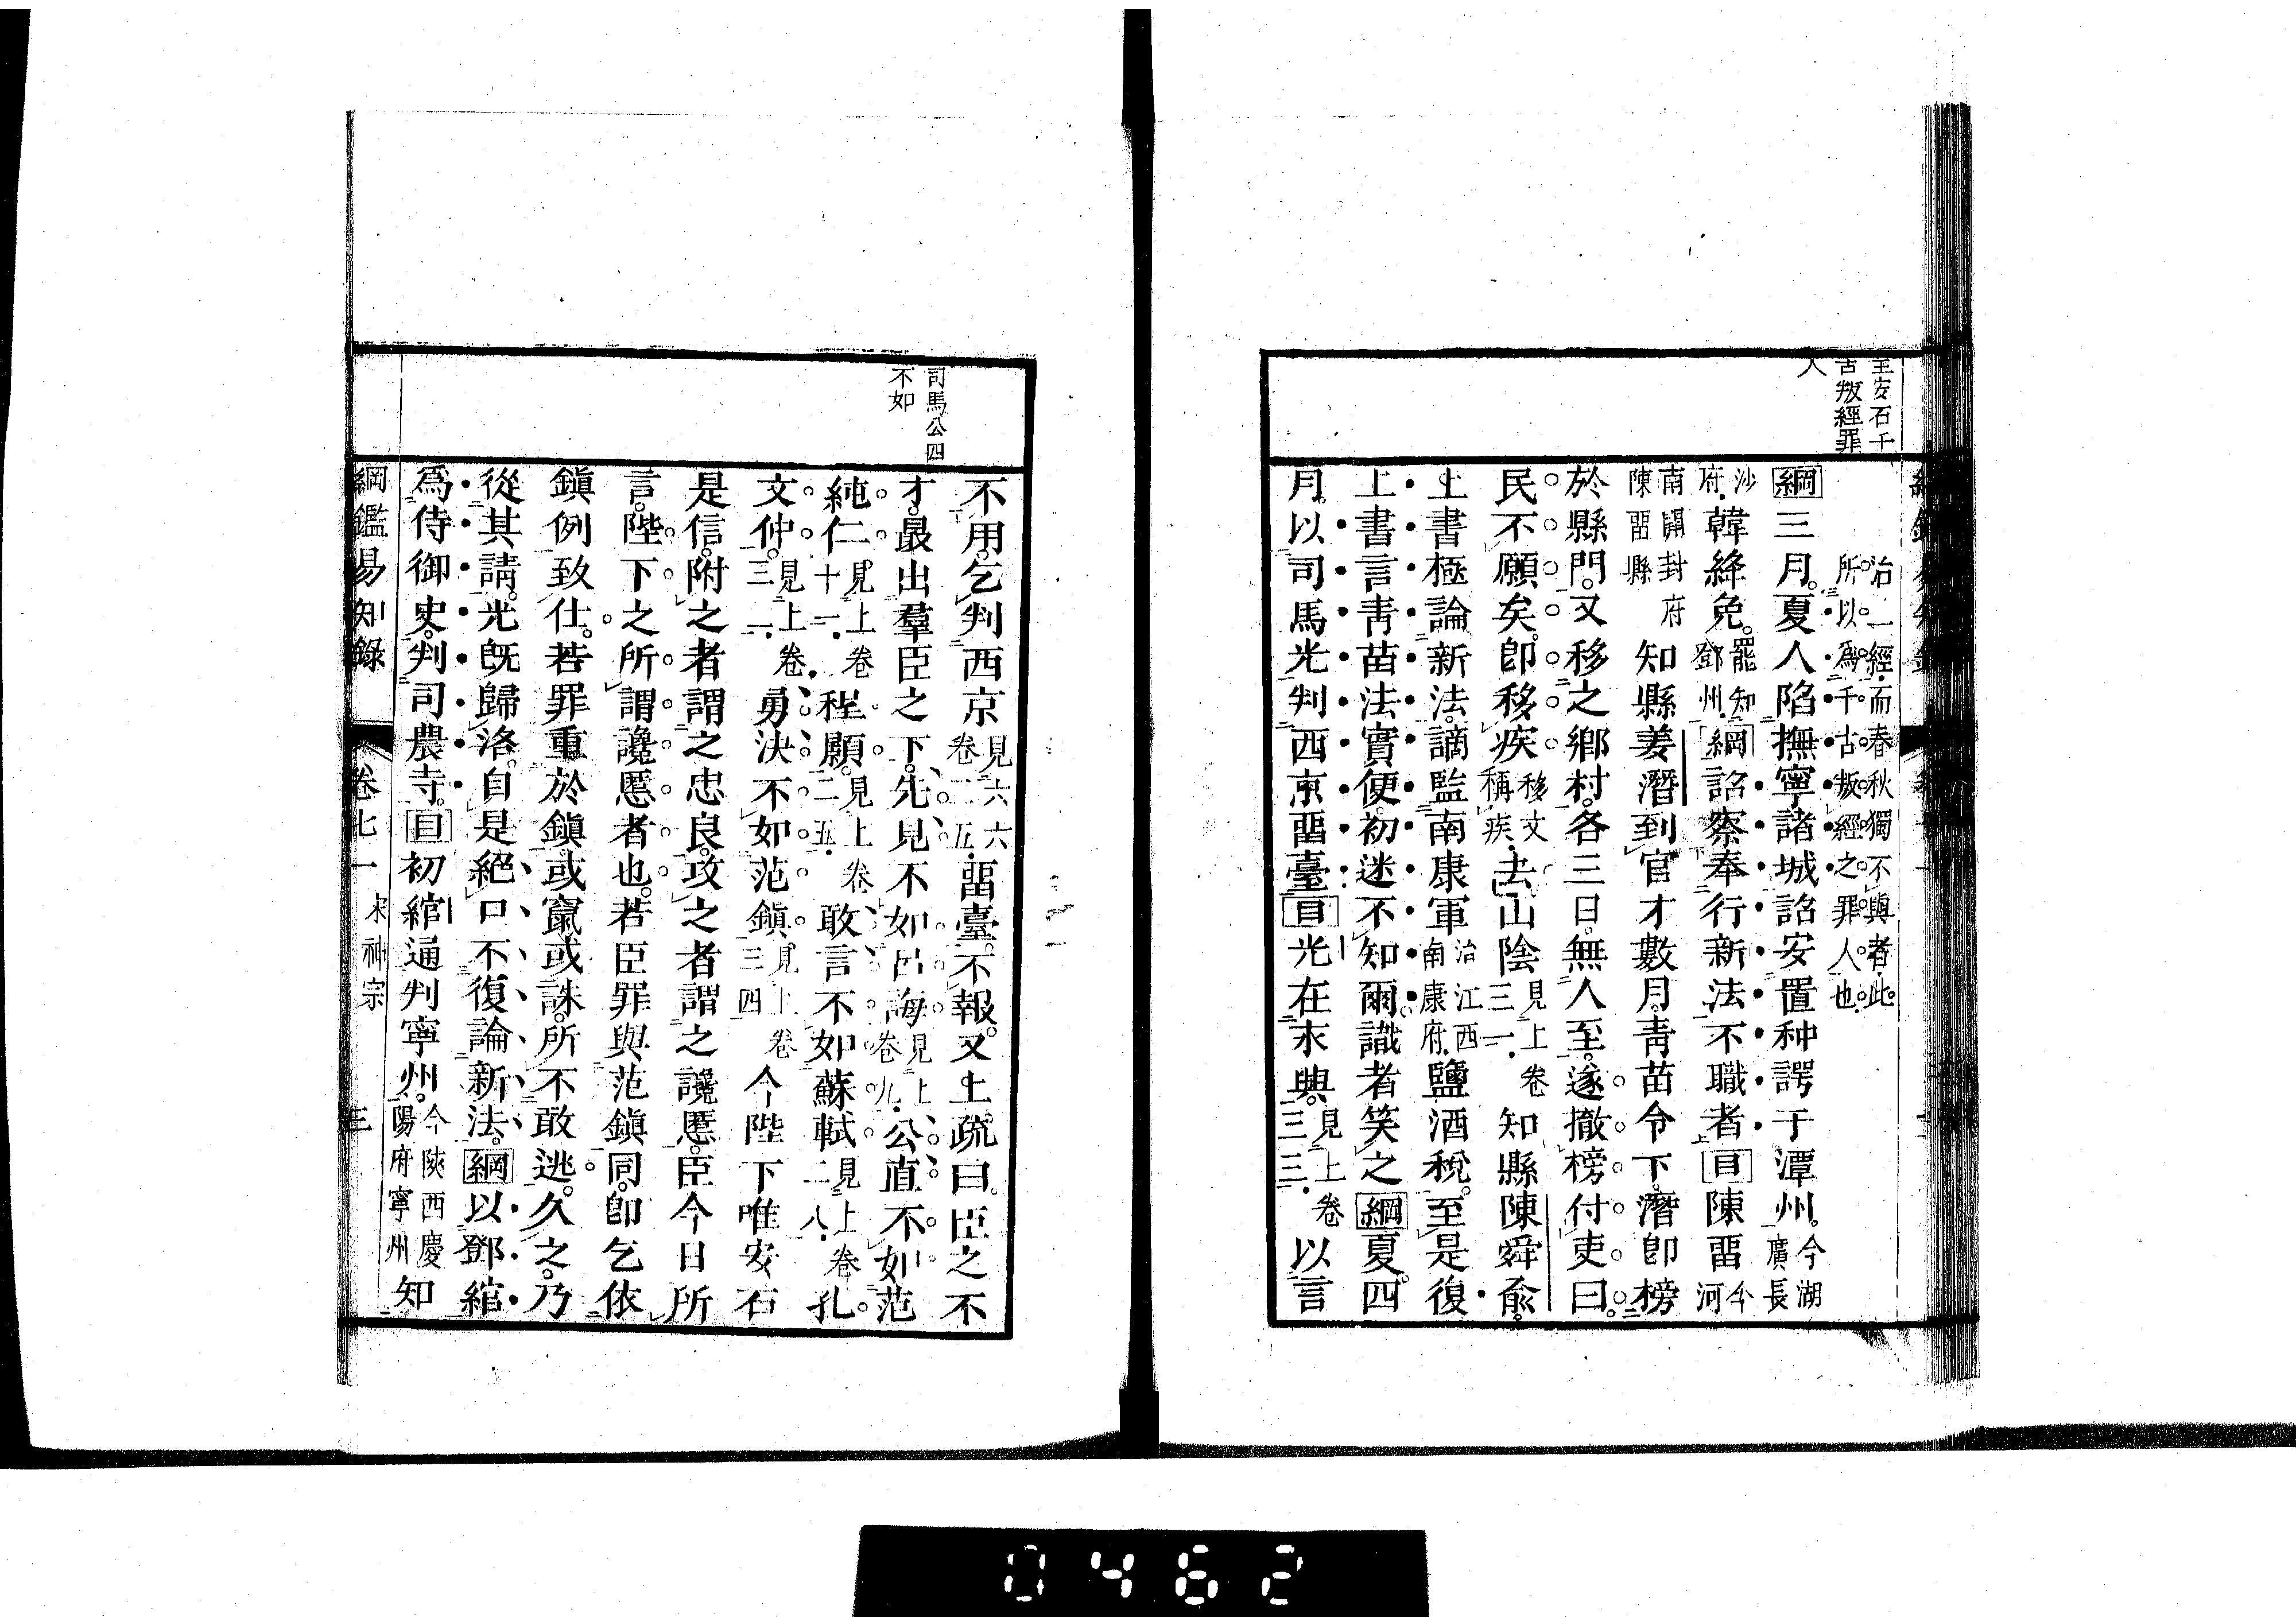 王安石千
古叛經罪
人
治一經而春秋獨不與者此
所以爲千古叛經之罪人也
綱三月夏人陷撫寧諸城詔安置种諤于潭州今湖
廣長
沙
府韓絳免罷知
鄧州綱詔察奉行新法不職者目陳畱今
河
南開封府
陳畱縣知縣姜潛到官才數月靑苗令下潛卽榜
於縣門又移之鄕村各三日無人至遂撤榜付吏曰
民不願矣卽移疾移文
稱疾去山陰見上卷
三一知縣陳舜兪
上書極論新法謫監南康軍治江西
南康府鹽酒稅至是復
上書言靑苗法實便初迷不知爾識者笑之綱夏四
月以司馬光判西京畱臺目光在永興見上卷
三三以言
司馬公四
不如
不用乞判西京見六六
卷二五畱臺不報又上疏曰臣之不
才最出羣臣之下先見不如呂誨見上
卷九公直不如范
純仁見上卷
十一程顥見上卷
二五敢言不如蘇軾見上卷
二八孔
文仲見上卷
三一勇決不如范鎭見上卷
三四今陛下唯安石
是信附之者謂之忠良攻之者謂之讒慝臣今日所
言陛下之所謂讒慝者也若臣罪與范鎭同卽乞依
鎭例致仕若罪重於鎭或竄或誅所不敢逃久之乃
從其請光旣歸洛自是絕口不復論新法綱以鄧綰
爲侍御史判司農寺目初綰通判寧州今陝西慶
陽府寧州知
綱鑑易知錄 卷七一 宋神宗 三
0462